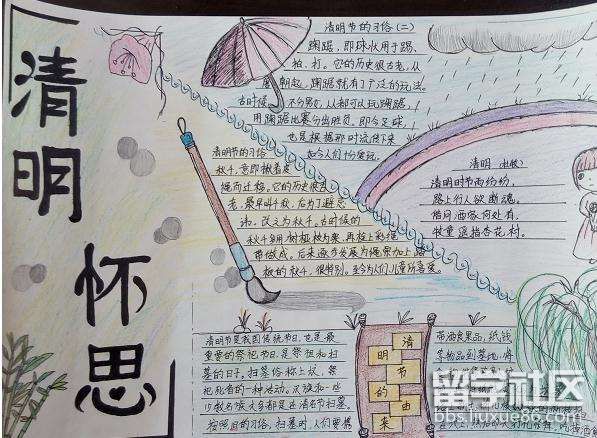 清明
怀思
清明节的习俗（二）
蹴踘，即球状用于踢、
拍、打。它的历史很古老，从
唐朝起，蹴踘就有了广泛的玩法。
古时候，不分男女，人都可以玩蹴踘！
用蹴踘比赛分出胜负，即今足球，
也是根据那时流传下来，
如今人们怀爱玩。
清明节的习俗
秋千，意即揪着皮
绳而迁移。它的历史很古
老，最早叫千秋，后为了避忌
讳，改之为秋千。古时候的
秋千多用树桠枝为架，再栓上彩绳
带做成。后来逐步发展为绳索加上踏
板的秋千，很特别。至今为人们儿童所喜爱。
清明 （杜牧）
清明时节雨纷纷，
路上行人欲断魂。
借问酒家何处有，
牧童遥指杏花村。
清明节是我国传统节日，也是最
重要的祭祀节日，是祭祖和扫
墓的日子。扫墓俗称上坟，祭
祀死者的一种活动。汉族和一些
少数名族大多都是在清明节扫墓。
按照旧的习俗，扫墓时，人们要携
清明节的由来
带酒食果品，纸钱
等物品到墓地，将
留学社区
bbs.liuxue86.com